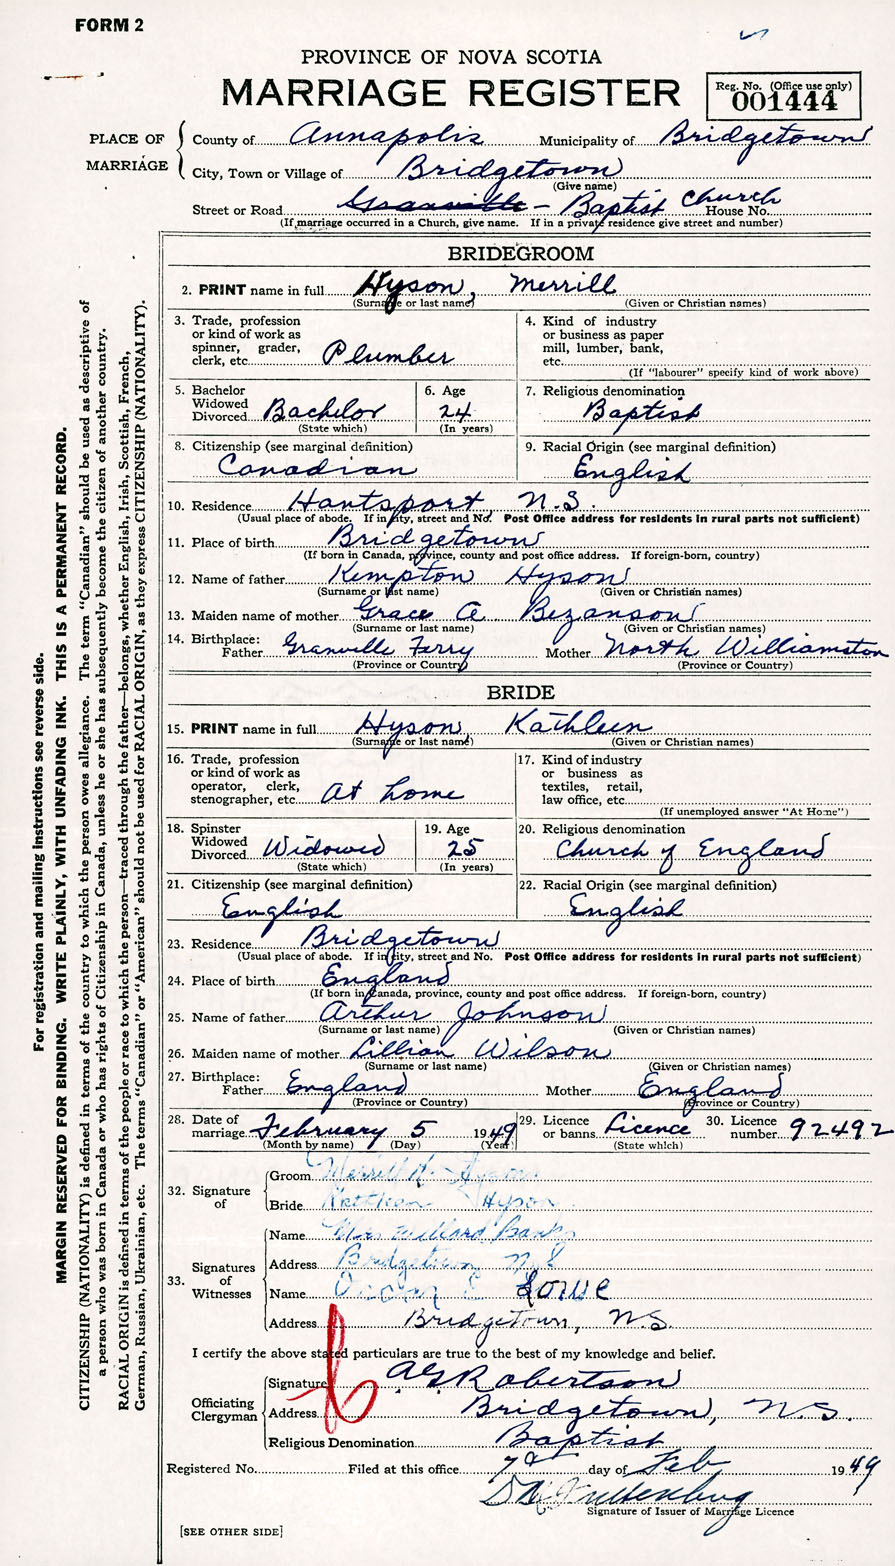 FORM 2
PROVINCE OF NOVA SCOTIA
MARRIAGE REGISTER
Reg. No. (Office use only)
001444
PLACE OF MARRIAGE
County of Annapolis Municipality of Bridgetown
City, Town or Village of Bridgetown
(Give name)
Street or Road Granville - Baptist Church House No.
(If marriage occurred in a Church, give name. If in a private residence give street and number)
BRIDEGROOM
2. PRINT name in full Hyson, Merrill
(Surname or last name) (Given or Christian names)
3. Trade, profession or kind of work as spinner, grader, clerk, etc. Plumber
4. Kind of industry or business as paper mill, lumber, bank, etc.
(If "labourer" specify kind of work above)
5. Bachelor Widowed Divorced Bachelor
(State which)
6. Age 24
(In years)
7. Religious denomination
Baptist
8. Citizenship (see marginal definition)
Canadian
9. Racial Origin (see marginal definition)
English
10. Residence Hantsport, N.S.
(Usual place of abode. If in city, street and No. Post Office address for residents in rural parts not sufficient)
11. Place of birth Bridgetown
(If born in Canada, province, county and post office address. If foreign-born, country)
12. Name of father Kempton Hyson
(Surname or last name) (Given or Christian names)
13. Maiden name of mother Grace A Bezanson
(Surname or last name) (Given or Christian names)
14. Birthplace:
Father Granville Ferry Mother North Williamston
(Province or Country) (Province or Country)
BRIDE
15. PRINT name in full Hyson, Kathleen
(Surname or last name) (Given or Christian names)
16. Trade, profession or kind of work as operator, clerk, stenographer, etc. At home
17. Kind of industry or business as textiles, retail, law office, etc.
(If unemployed answer "At Home")
18. Spinster Widowed Divorced Widowed
(State which)
19. Age 25
(In years)
20. Religious denomination
Church of England
21. Citizenship (see marginal definition)
English
22. Racial Origin (see marginal definition)
English
23. Residence Bridgetown
(Usual place of abode. If in city, street and No. Post Office address for residents in rural parts not sufficient)
24. Place of birth England
(If born in Canada, province, county and post office address. If foreign-born, country)
25. Name of father Arthur Johnson
(Surname or last name) (Given or Christian names)
26. Maiden name of mother Lillian Wilson
(Surname or last name) (Given or Christian names)
27. Birthplace:
Father England Mother England
(Province or Country) (Province or Country)
28. Date of marriage February 5 1949
(Month by name) (Day) (Year)
29. Licence or banns Licence
(State which)
30. Licence number 92492
32. Signature of
Groom Merrill K. Hyson
Bride Kathleen Hyson
33. Signatures of Witnesses
Name Mrs Willard Banks
Address Bridgetown N.S
Name Oscar E Lowe
Address Bridgetown, N.S.
I certify the above stated particulars are true to the best of my knowledge and belief.
Officiating Clergyman
Signature A G Robertson
Address Bridgetown, N.S.
Religious Denomination Baptist
Registered No. Filed at this office 7th day of Feb 1949
Signature of Issuer of Marriage Licence
[SEE OTHER SIDE]
For registration and mailing instructions see reverse side.
MARGIN RESERVED FOR BINDING. WRITE PLAINLY, WITH UNFADING INK. THIS IS A PERMANENT RECORD.
CITIZENSHIP (NATIONALITY) is defined in terms of the country to which the person owes allegiance. The term "Canadian" should be used as descriptive of
a person who was born in Canada or who has rights of Citizenship in Canada, unless he or she has subsequently become the citizen of another country.
RACIAL ORIGIN is defined in terms of the people or race to which the person—traced through the father—belongs, whether English, Irish, Scottish, French,
German, Russian, Ukrainian, etc. The terms "Canadian" or "American" should not be used for RACIAL ORIGIN, as they express CITIZENSHIP (NATIONALITY).